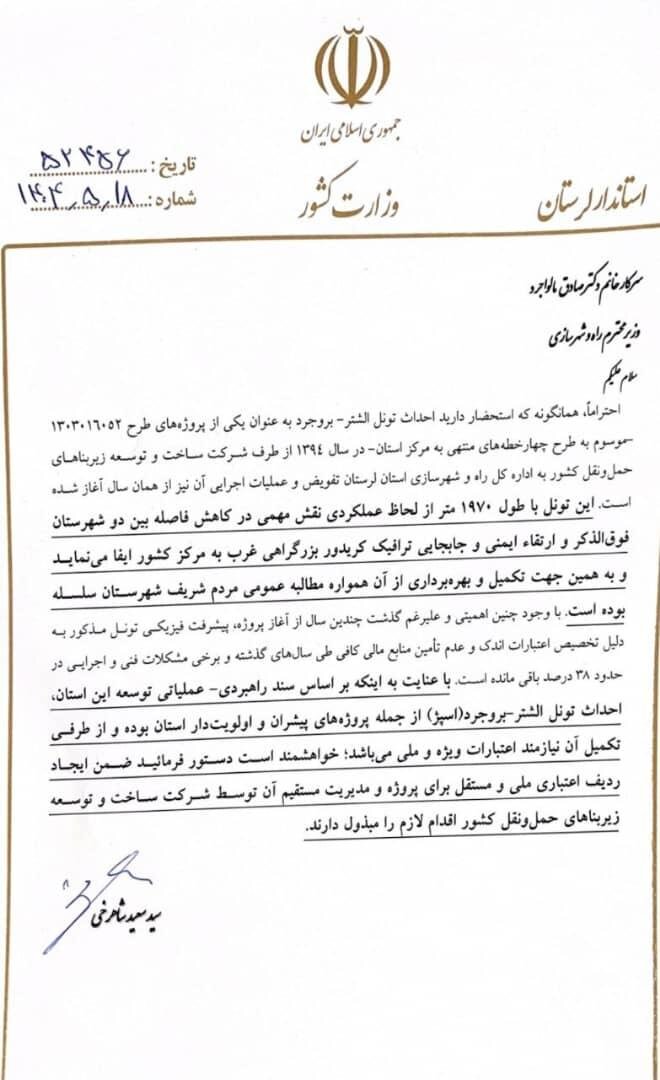 جمهوری اسلامی ایران
وزارت کشور
استاندار لرستان
تاریخ: ۵۲۴۵۶
شماره: ۱۴۰۴٫۵٫۱۸
سرکار خانم دکتر صادق مالواجرد
وزیر محترم راه و شهرسازی
سلام علیکم
احتراماً، همانگونه که استحضار دارید احداث تونل الشتر- بروجرد به عنوان یکی از پروژه‌های طرح ۱۳۰۳۰۱۶۰۵۲
-موسوم به طرح چهارخطه‌های منتهی به مرکز استان- در سال ۱۳۹۴ از طرف شرکت ساخت و توسعه زیربناهای
حمل‌ونقل کشور به اداره کل راه و شهرسازی استان لرستان تفویض و عملیات اجرایی آن نیز از همان سال آغاز شده
است. این تونل با طول ۱۹۷۰ متر از لحاظ عملکردی نقش مهمی در کاهش فاصله بین دو شهرستان
فوق‌الذکر و ارتقاء ایمنی و جابجایی ترافیک کریدور بزرگراهی غرب به مرکز کشور ایفا می‌نماید
و به همین جهت تکمیل و بهره‌برداری از آن همواره مطالبه عمومی مردم شریف شهرستان سلسله
بوده است. با وجود چنین اهمیتی و علیرغم گذشت چندین سال از آغاز پروژه، پیشرفت فیزیکی تونل مذکور به
دلیل تخصیص اعتبارات اندک و عدم تأمین منابع مالی کافی طی سال‌های گذشته و برخی مشکلات فنی و اجرایی در
حدود ۳۸ درصد باقی مانده است. با عنایت به اینکه بر اساس سند راهبردی- عملیاتی توسعه این استان،
احداث تونل الشتر-بروجرد(اسپژ) از جمله پروژه‌های پیشران و اولویت‌دار استان بوده و از طرفی
تکمیل آن نیازمند اعتبارات ویژه و ملی می‌باشد؛ خواهشمند است دستور فرمائید ضمن ایجاد
ردیف اعتباری ملی و مستقل برای پروژه و مدیریت مستقیم آن توسط شرکت ساخت و توسعه
زیربناهای حمل‌ونقل کشور اقدام لازم را مبذول دارند.
سید سعید شاهرخی